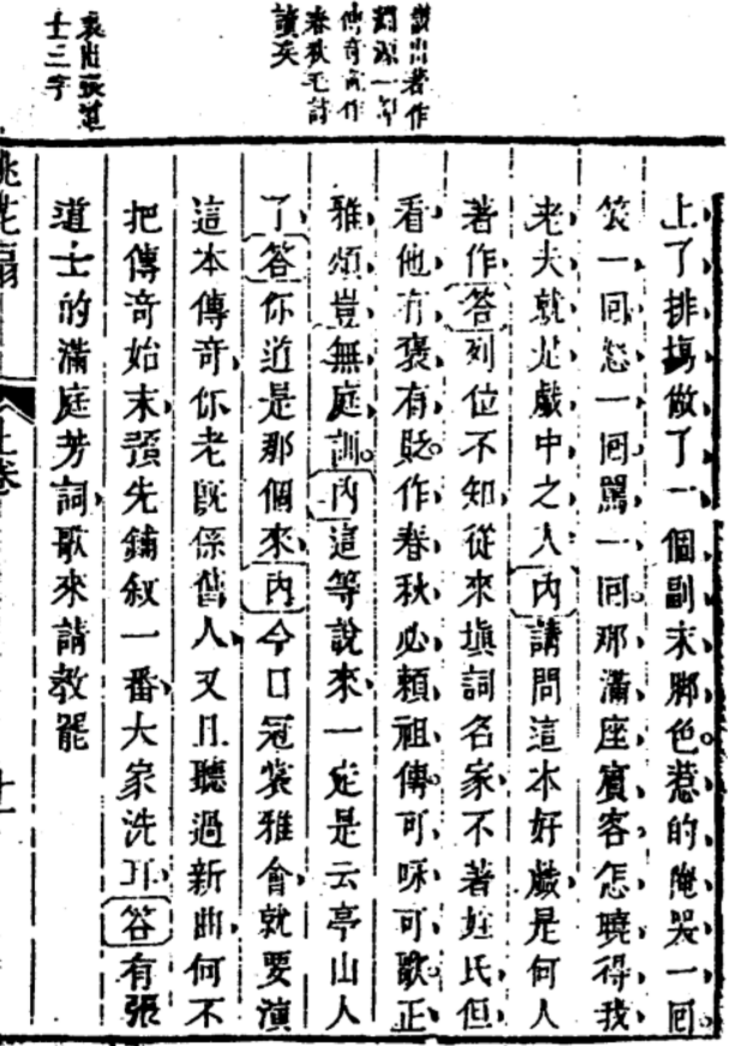 說出著作
淵源一部
傳奇直作
春秋毛詩
讀矣
表出張道
士三字
上了排場做了一個副末脚色惹的俺哭一回
笑一回怒一回罵一回那滿座賓客怎曉得我
老夫就是戲中之人内請問這本好戲是何人
著作答列位不知從來塡詞名家不著姓氏但
看他有褒有貶作春秋必賴祖傳可咏可歌正
雅頌豈無庭訓内這等說來一定是云亭山人
了答你道是那個來内今日冠裳雅會就要演
這本傳奇你老既係舊人又且聽過新曲何不
把傳奇始末預先鋪叙一番大家洗耳答有張
道士的滿庭芳詞歌來請教罷
桃花扇
上卷
十一